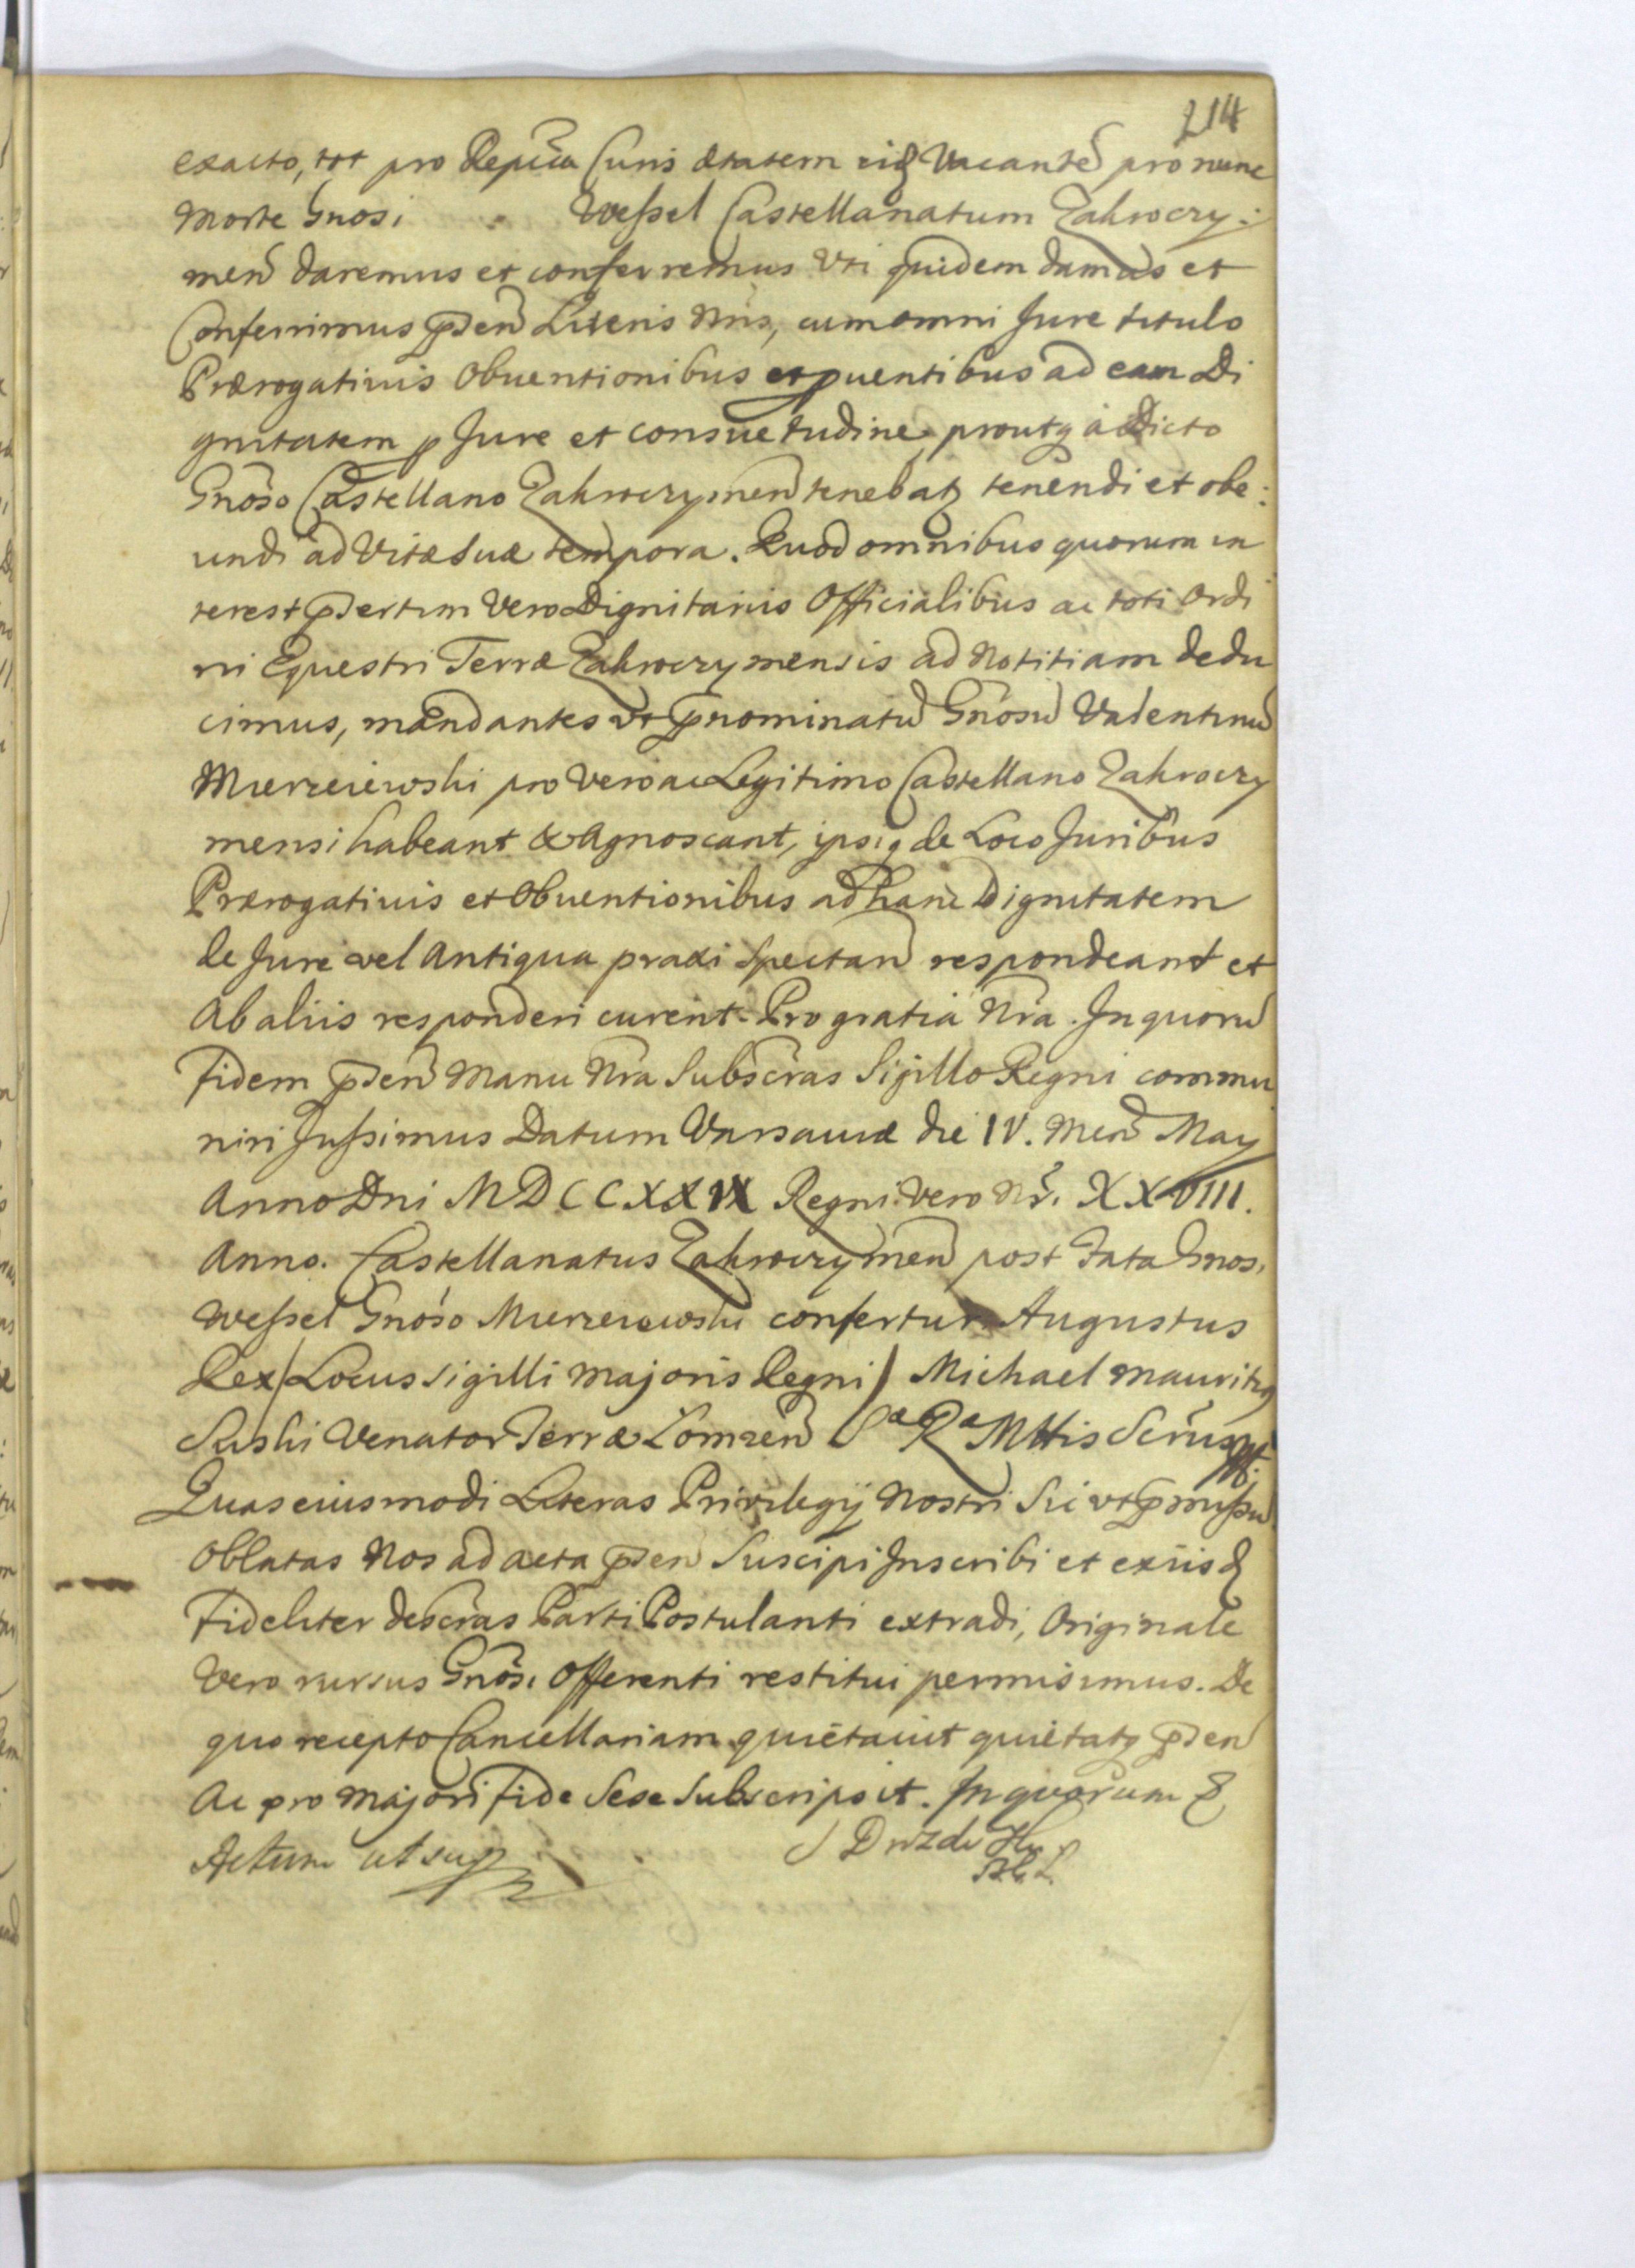 214
exacto, tot pro Repũca Curis ætatem eiq Vacantẽ pro nunc
Morte Gnosi Weſsel Castellanatum Zakroczy:
meñ daremus et conferremus Vti quidem damus et
Conferrimus p̃señ Literis Nr̃is, cum omni Jure titulo
Prærogativis Obventionibus et p̃uentibus ad eam Di
gnitatem p Jure et consuetudine proutq a Dicto
Gnõso Castellano Zakroczymeñ tenebatq tenendi et obe:
undi ad Vitæ suæ tempora. Quod omnibus quorum in
terest p̃sertim Vero Dignitariis Officialibus ac toti Ordi
ni Equestri Terræ Zakroczymensis ad Notitiam dedu
cimus, mandantes vt p̃nominatũ Gnõsũ Valentinũ
Mierzeiewski pro vero ac Legitimo Castellano Zakroczy
mensi habeant & Agnoscant, ipsiq de Loco Juribus
Prærogativis et Obventionibus ad hanc Dignitatem
de Jure vel Antiqua praxi Spectañ respondeant et
Ab aliis responderi curent. Pro gratia Nr̃a. In quorũ
Fidem p̃señ Manu Nr̃a Subscr̃as Sigillo Regni commu
niri Juſsimus Datum Varsaviæ die IV. Meñ May
Anno Dni MDCCXXIX Regni vero Nr̃i XXVIII.
Anno. Castellanatus Zakroczymeñ post Fata Gnosi
Weſsel Gnõso Mierzeiewski confertur Augustus
Rex / Locus sigilli Majoris Regni / Michael Mauritiq
Suski Venator Terræ Łomzeñ Sæ Ræ Mttis Scrius mp.
Quas eiusmodi Literas Privilegij Nostri Sic vt p̃miſsũ
Oblatas Nos ad acta p̃señ Suscipi Inscribi et ex iisd
Fideliter descr̃as Parti Postulanti extradi, Originale
Vero rursus Gnõsi Offerenti restitui permisimus. De
quo recepto Cancellariam quietavit quietatq p̃señ
Ac pro Majori Fide Sese Subscripsit. In quorum &
Actum ut sup